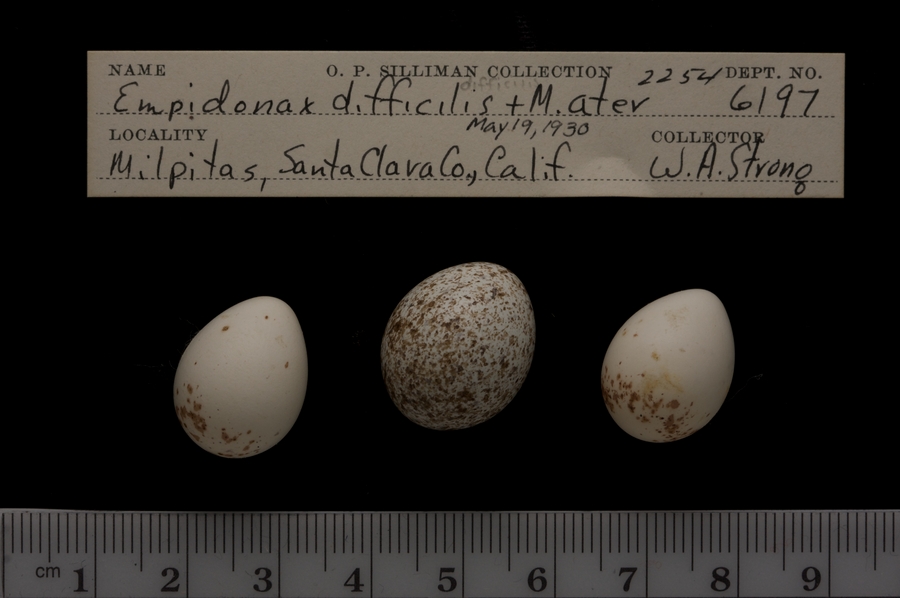 NAME O. P. SILLIMAN COLLECTION 2254 DEPT. NO.
difficilis
Empidonax difficilis + M. ater 6197
May 19, 1930
LOCALITY COLLECTOR
Milpitas, Santa Clara Co., Calif. W. A. Strong
cm 1 2 3 4 5 6 7 8 9